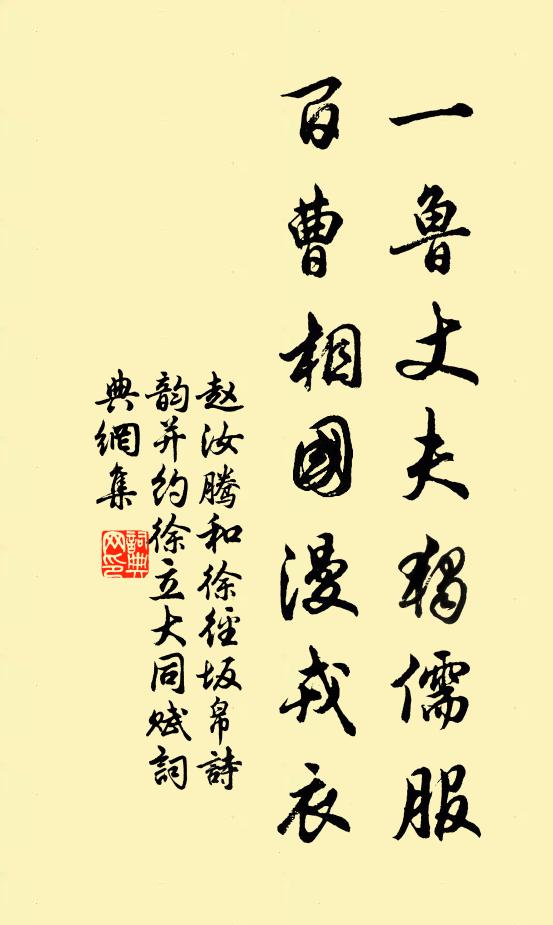 一魯丈夫獨儒服
百曹相國漫戎衣
赵汝腾和徐徑坂帛詩
韵并約徐立大同赋詞
典網集
詞典
网印